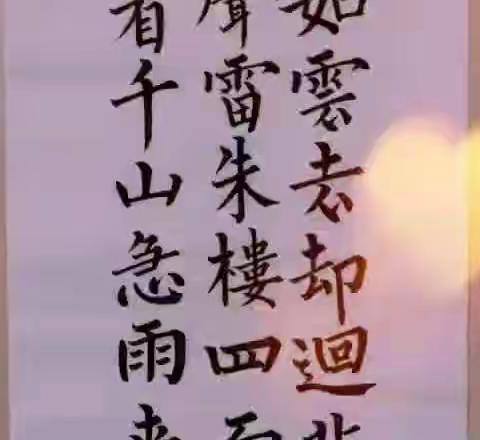 如雲去却迴
聲雷朱樓四面
看千山急雨来